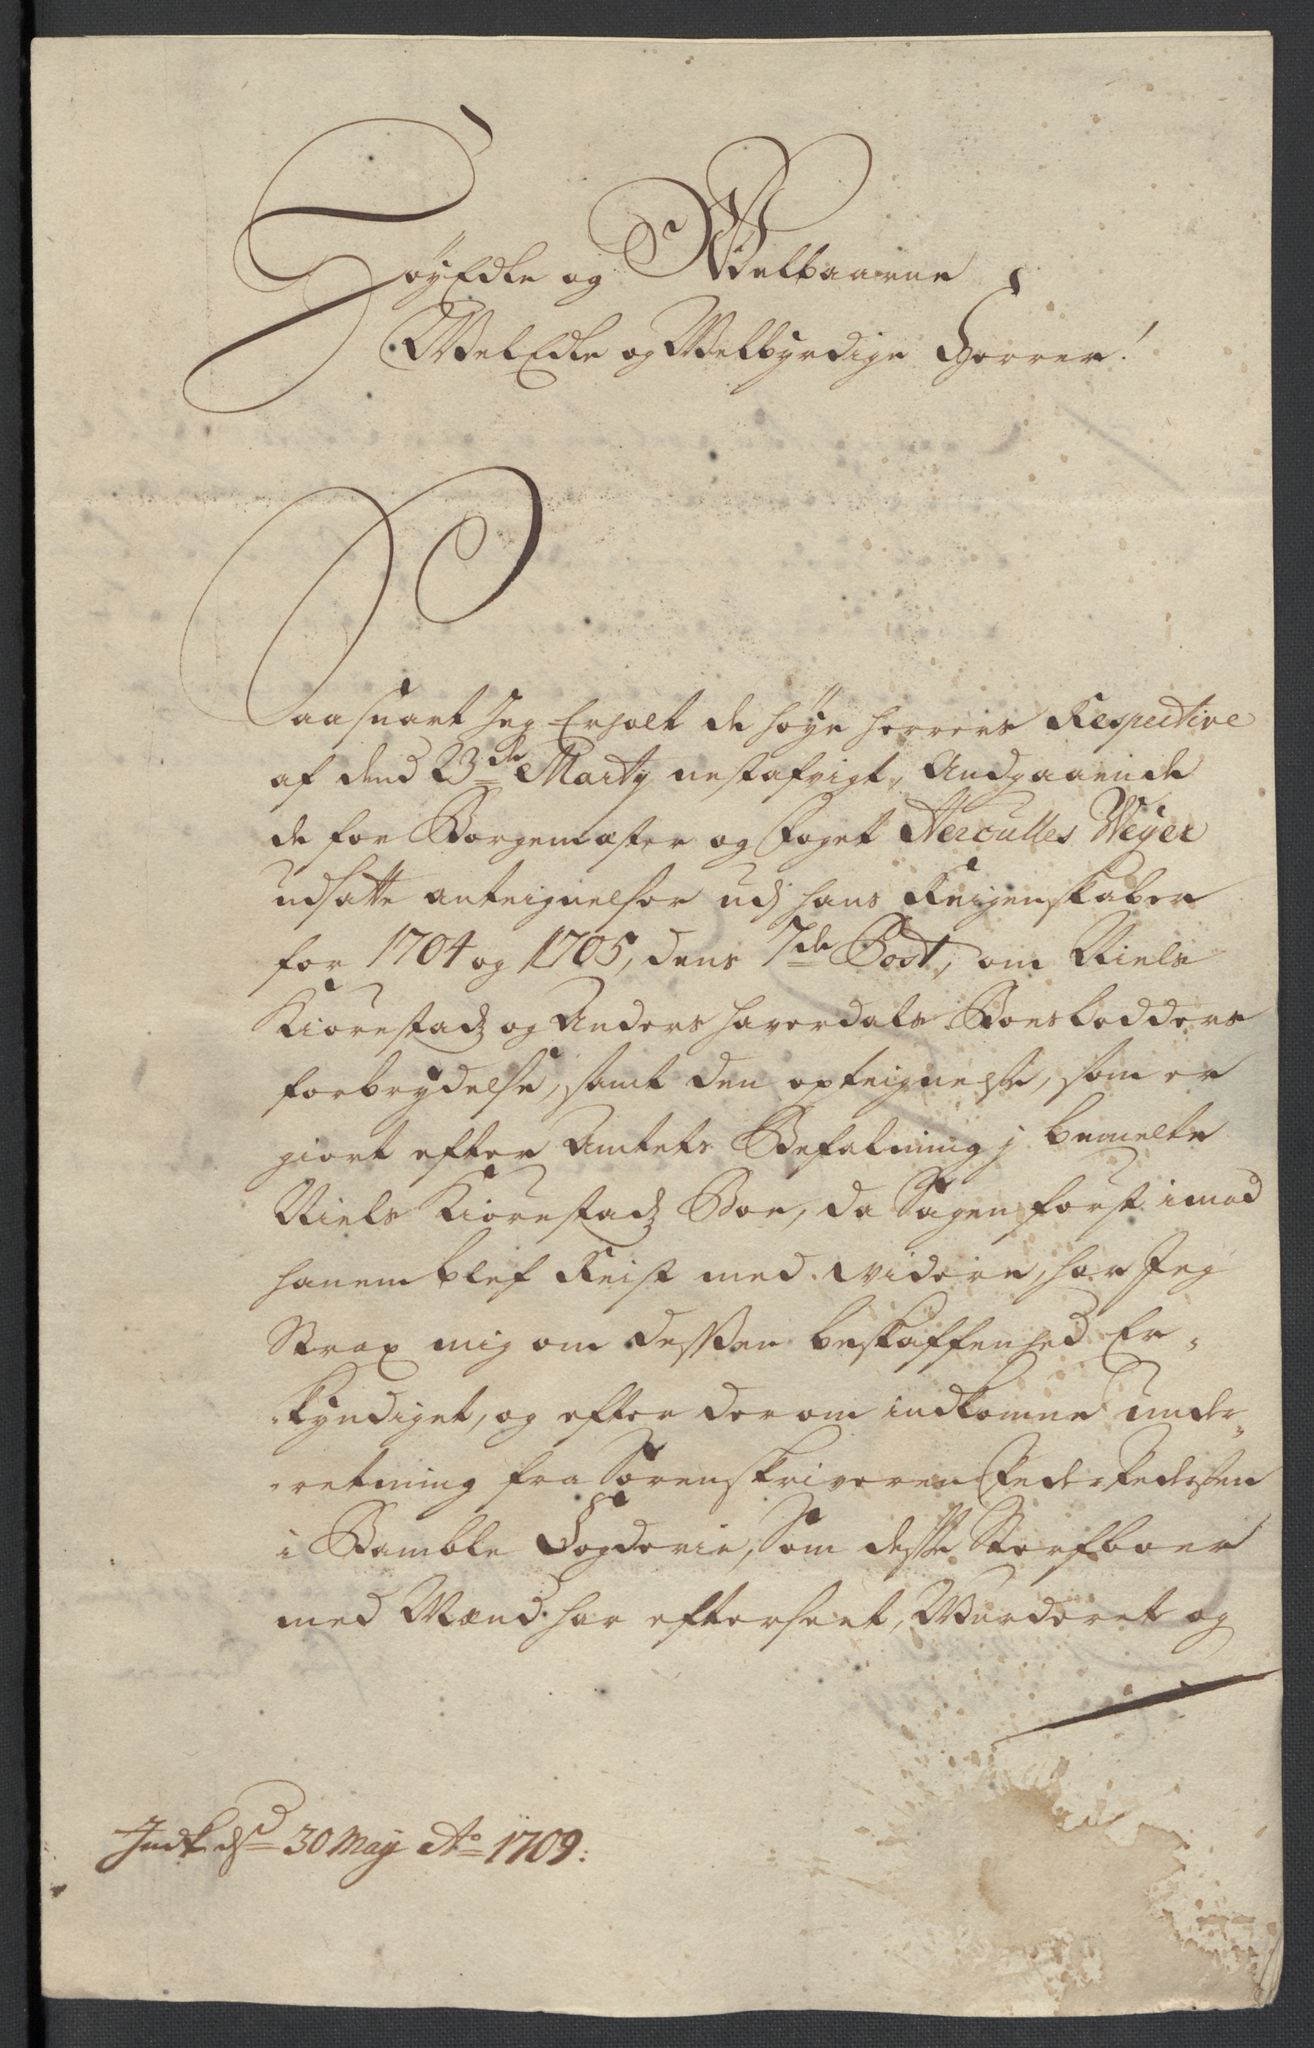 HøyEdle og Welbaarne
WelEdle og Welbyrdige Herrer!
Saasnart Jeg Erholt de høye herrers Respective
af dend 23de Marty nestafvigt, Andgaaende
de for Borgemester og Foget Herculles Weyer
udsatte anteignelser udj hans Reigenskaber
for 1704 og 1705, dens 7de Post, om Niels
Kiørestad og Anders haverdals Boeslodders
forbrydelse, samt den opteignelse, som er
giort efter Amtets Befalning j bemelte
Niels Kiørestads Boe, da Sagen først imod
hanem blef Reist med videre, har Jeg
Strax mig om dessen beskaffenhed Er-
kyndiget, og efter derom indkomne under-
retning fra Sorenskriveren Peder Pedersen
i Bamble Fogderie, Som desse Sterfboer
med Mænd har efterseet, Wurderet og
Indk dend 30 May Ao 1709.